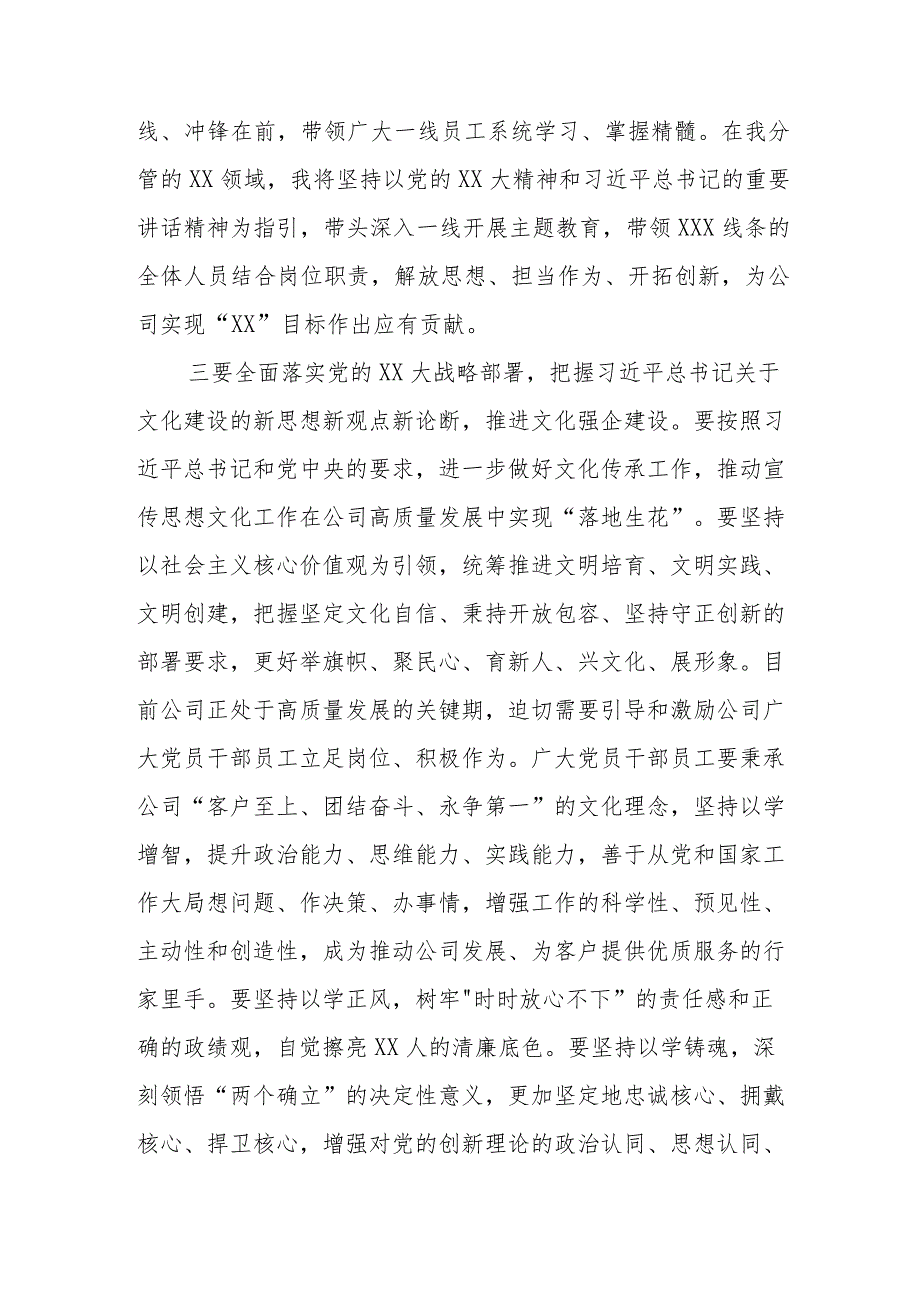 线、冲锋在前，带领广大一线员工系统学习、掌握精髓。在我分
管的XX领域，我将坚持以党的XX大精神和习近平总书记的重要
讲话精神为指引，带头深入一线开展主题教育，带领XXX线条的
全体人员结合岗位职责，解放思想、担当作为、开拓创新，为公
司实现“XX”目标作出应有贡献。
三要全面落实党的XX大战略部署，把握习近平总书记关于
文化建设的新思想新观点新论断，推进文化强企建设。要按照习
近平总书记和党中央的要求，进一步做好文化传承工作，推动宣
传思想文化工作在公司高质量发展中实现“落地生花”。要坚持
以社会主义核心价值观为引领，统筹推进文明培育、文明实践、
文明创建，把握坚定文化自信、秉持开放包容、坚持守正创新的
部署要求，更好举旗帜、聚民心、育新人、兴文化、展形象。目
前公司正处于高质量发展的关键期，迫切需要引导和激励公司广
大党员干部员工立足岗位、积极作为。广大党员干部员工要秉承
公司“客户至上、团结奋斗、永争第一”的文化理念，坚持以学
增智，提升政治能力、思维能力、实践能力，善于从党和国家工
作大局想问题、作决策、办事情，增强工作的科学性、预见性、
主动性和创造性，成为推动公司发展、为客户提供优质服务的行
家里手。要坚持以学正风，树牢"时时放心不下”的责任感和正
确的政绩观，自觉擦亮XX人的清廉底色。要坚持以学铸魂，深
刻领悟“两个确立”的决定性意义，更加坚定地忠诚核心、拥戴
核心、捍卫核心，增强对党的创新理论的政治认同、思想认同、